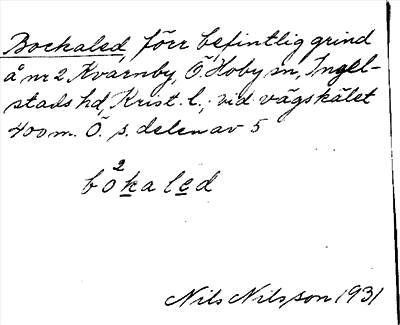 Bockaled, förr befintlig grind
å nr 2, Kvarnby, Ö. Hoby sn, Ingel-
stads hd, Krist. l.; vid vägskälet
400 m. Ö. s. delen av 5
bo²kaled
Nils Nilsson 1931